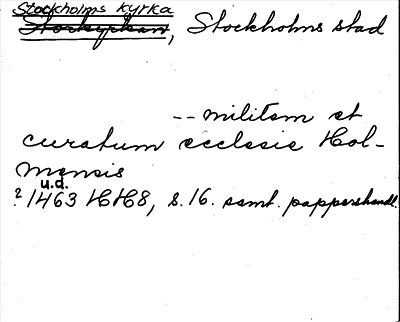 Stockholms kyrka
Storkyrkan, Stockholms stad
-- militem et
curatum ecclesie Hol-
mensis
u.d.
? 1463 HH8, s. 16. samt. pappershandl.